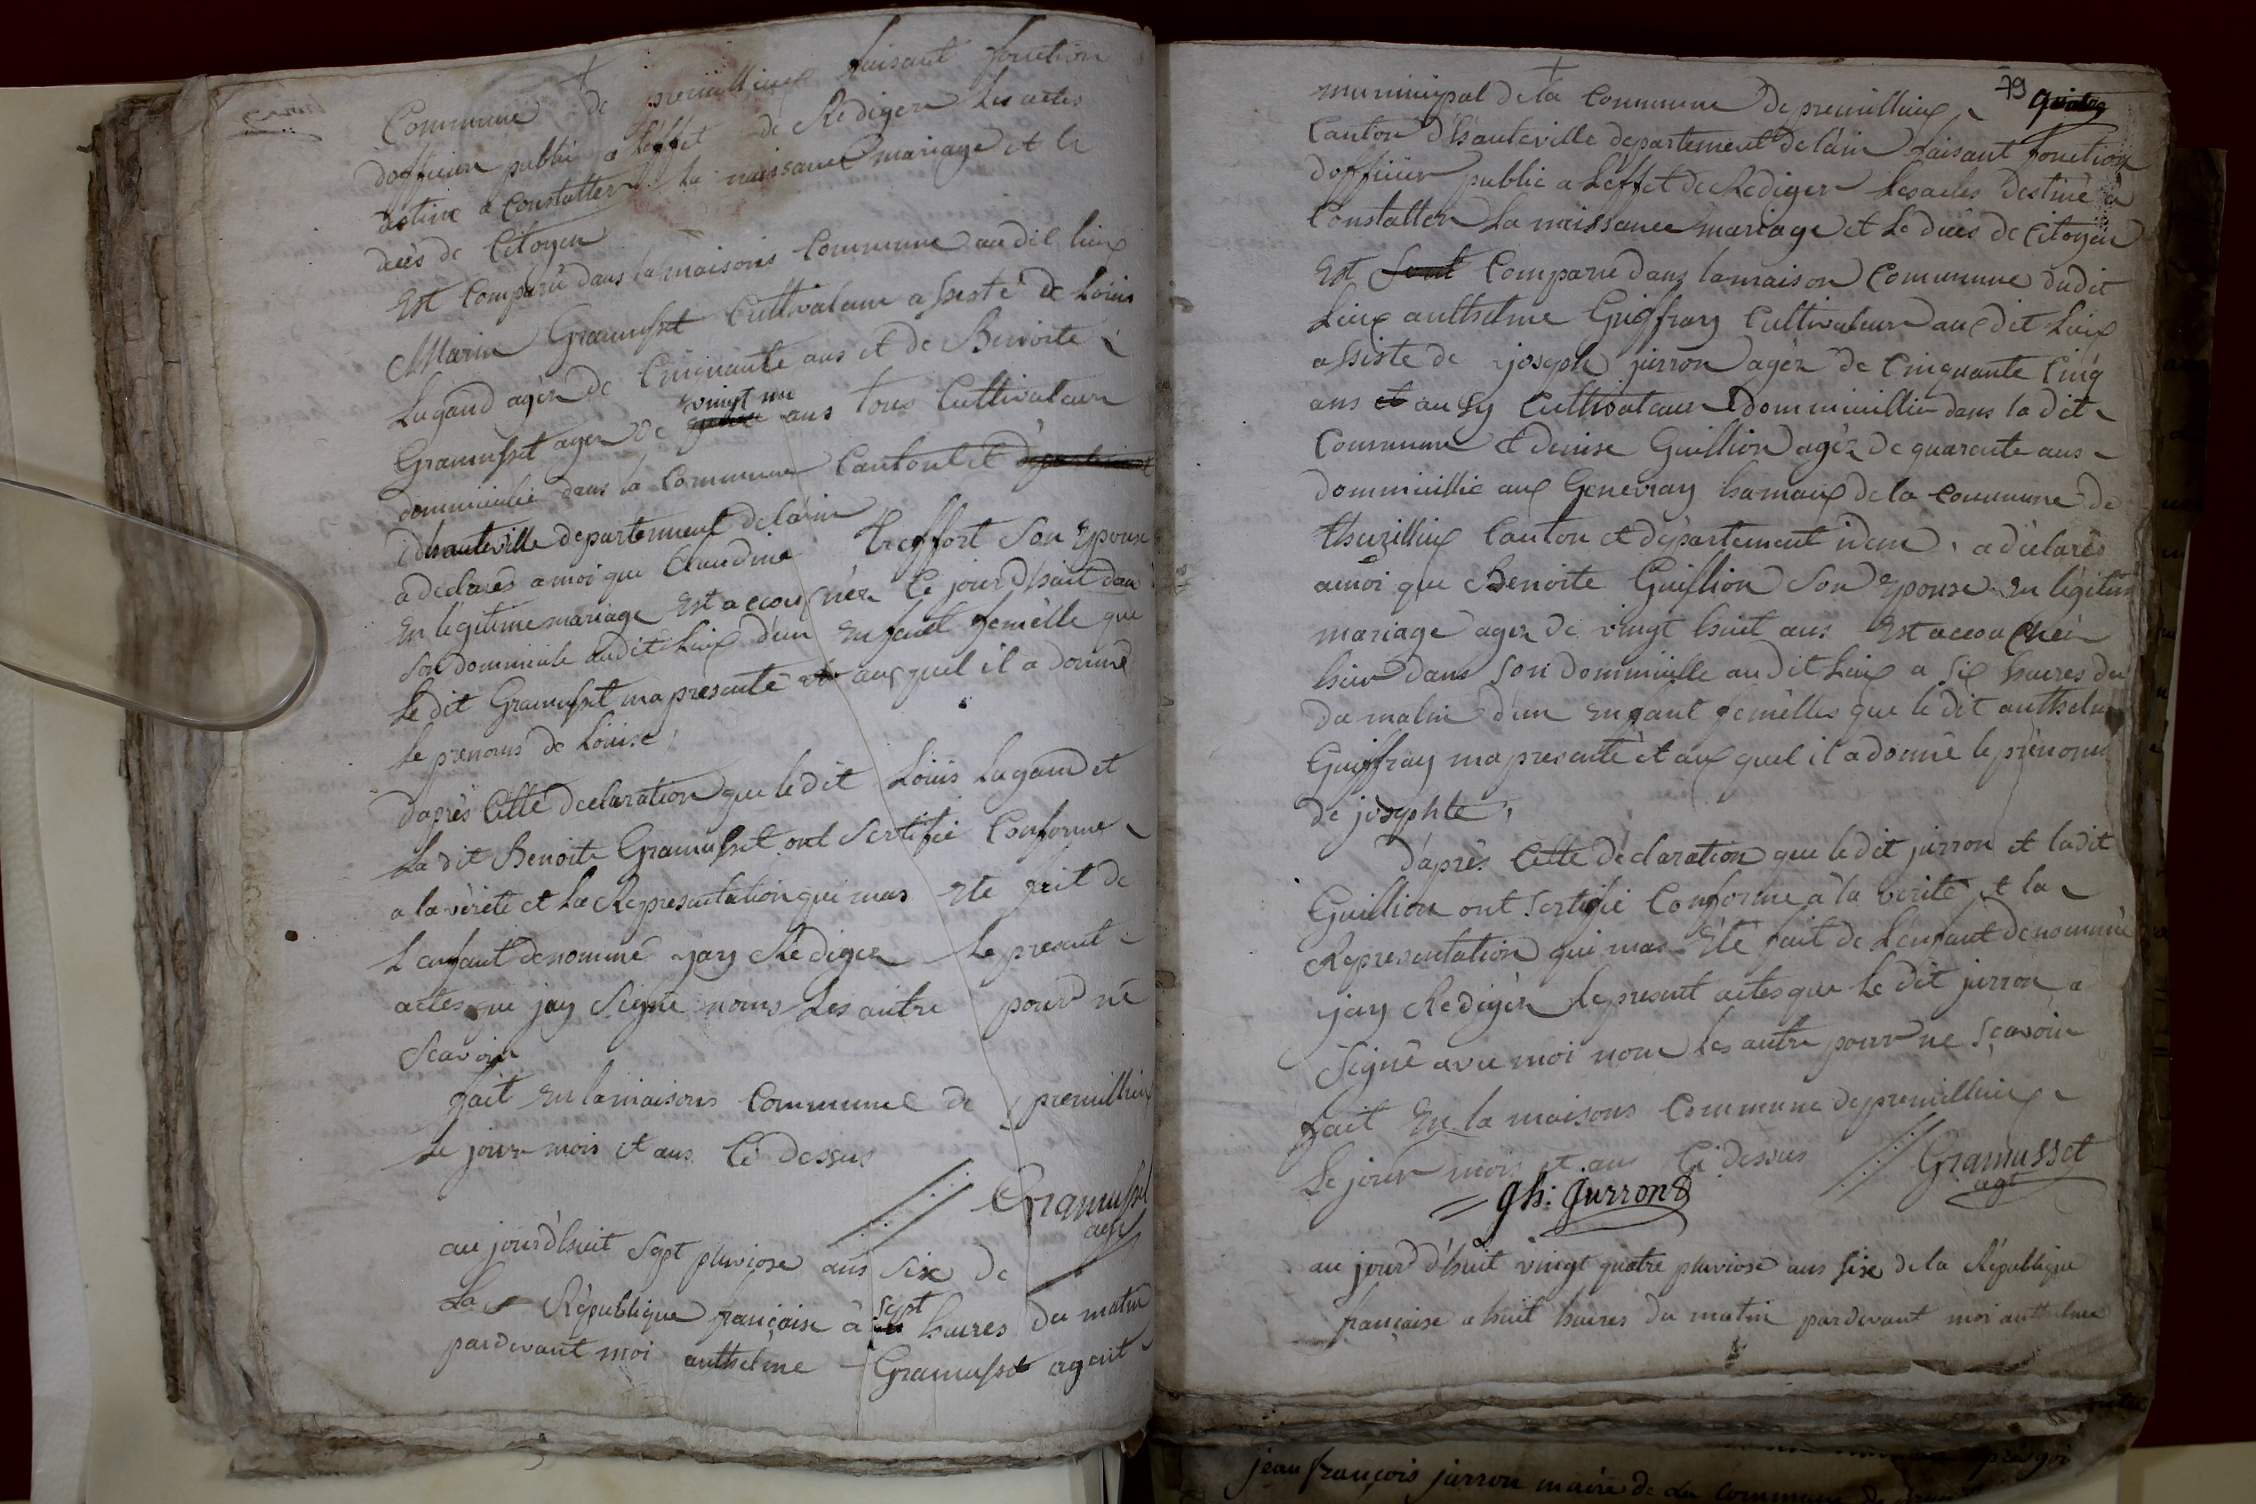 Commune de premillieux faisant fonction
dofficier public a leffet de Rediger les actes
destine a Constatter la naissance mariage et le
dèès de Citoyen
Est Comparu dans la maisons Commune au dit lieux
Marin Gramusset Cultivateur assisté de Loüis
Lugand agéz de Cinquante ans et de Benoite
Gramusset agez de vingt une ans tous Cultivateur
domminilié dans la Commune Cantont et departement
dhauteville departement de lain
a declarés a moi que Claudine Treffort Son Epouse
En légitime mariage Est accouchéz Ce jourdhuit dans
Son dommicile audit Lieux d'un Enfant femèlle que
Le dit Gramusset ma presenté et auxquel il a donné
le prenoms de Loüise,
d'aprés Cétté declaration que le dit Loüis Lugand et
la dit Benoite Gramusset ont Sertifié Conforme
a la vérité et la Representation qui mas Ete fait de
Lenfant denommé jay Rediger le present
actes que jay Signé noms les autre pour né
Scavoir
fait En la maisons Commune de premillieux
le jour mois et ans Ci dessus
Gramusset
agt
au jourd'huit Sept pluviose ans Six de
La République française à sept heures du matin
pardevant moi anthelme Gramusset agent
79
municipal de la Commune de premillieux
Canton d'hauteville departement de láin faisant fonction
dofficier public a Leffet de Rediger les actes Destiné à
Constatter La naissance mariage et Le dués de Citoyen
Est Sont Comparu dans la maison Commune dudit
Lieux anthelme Guiffray Cultivateur au dit Lieux
assiste de joseph jurron agéz de Cinquante Cinq
ans et ausy Cultivateur domminillier dans la dit
Commune et denise Guillion agéz de quarente ans
domminillié aux Genevray hamaux de la Commune de
thezillieux Canton et département idem, a déclarés
a moi que Benoite Guillion Son Epouse En légitim
mariage agez de vingt huit ans Est accouchéz
hier dans Son domminille au dit Lieux a Six heures du
du matin d'un Enfant femèlles que le dit anthelme
Guiffray ma presenté et aux quel il a donné le prénoms
de josephte,
d'aprés Cette déclaration que le dit jurron et la dit
Guillion ont Sertifié Conforme à la verité et la
Representation qui mas Eté fait de Lenfant denommé
jay Redigér le present actes que Le dit jurron a
Signé avec moi nom les autre pour ne Sçavoir
fait En la maisons Commune de premillieux
Le jour mois et ans Ci dessus
Gramusset
agt
jh: Jurron
au jourd d'huit vingt quatre pluviose ans Six de la République
française a huit heures du matin pardevant moi anthelme
jean françois jurron maire de La Commune de